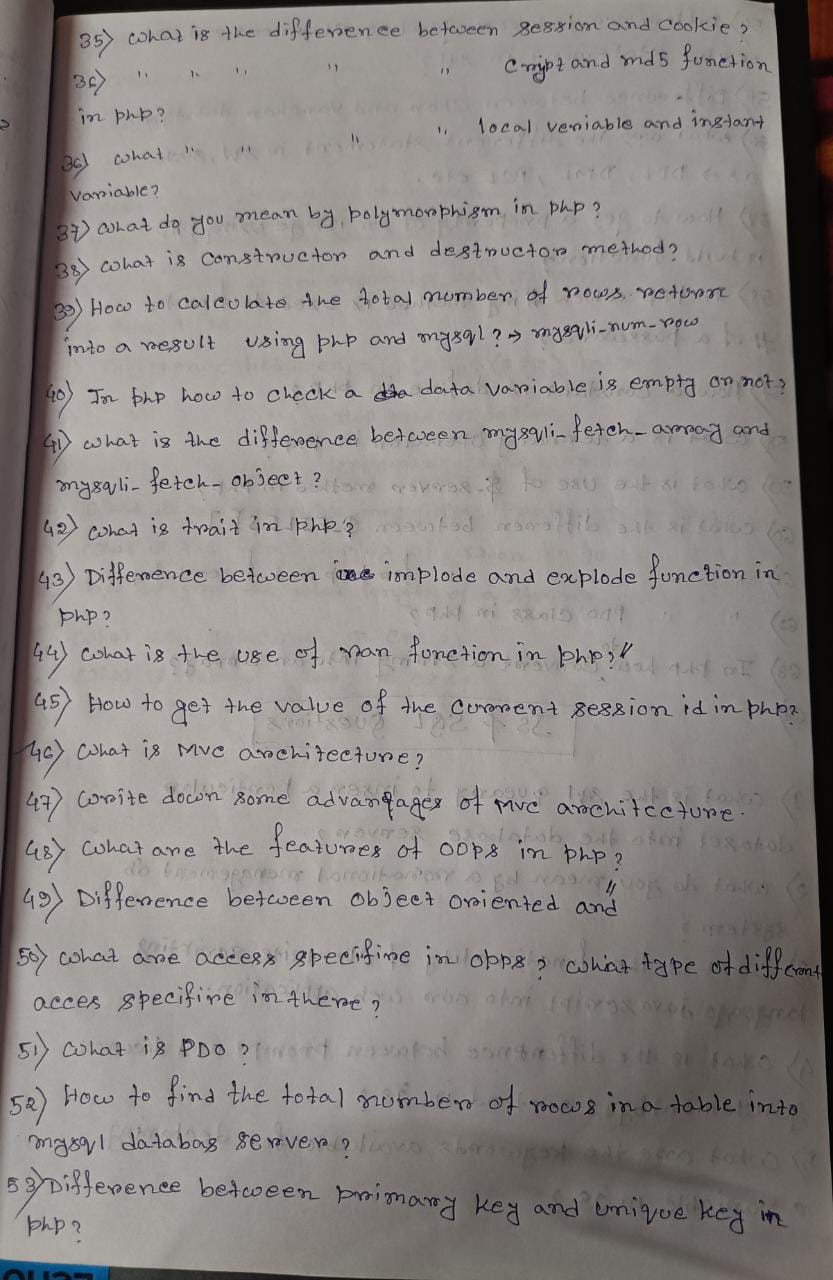 35) What is the difference between session and cookie?
36) " " " " " Crypt and md5 function
in php?
36) what " " " " local veriable and instant
variable?
37) What do you mean by polymorphism in php?
38) What is constructor and destructor method?
39) How to calculate the total number of rows return
into a result using php and mysql? → mysqli-num-row
40) In php how to check a data variable is empty or not?
41) what is the difference between mysqli-fetch-array and
mysqli-fetch-object?
42) What is trait in php?
43) Difference between implode and explode function in
php?
44) What is the use of ran function in php?
45) How to get the value of the current session id in php?
46) What is MVC architecture?
47) Write down some advantages of MVC architecture.
48) What are the features of OOPs in php?
49) Difference between object oriented and "
50) What are access specifire in opps? What type of different
acces specifire in there?
51) What is PDO?
52) How to find the total number of rows in a table into
mysql databas server?
53) Difference between primary key and unique key in
php?